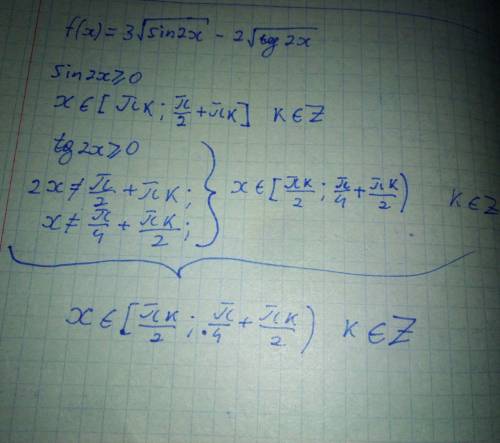 f(x)=3√sin2x - 2√tg2x
sin2x⩾0
x∈[πk; π/2+πk] k∈Z
tg2x⩾0
2x≠π/2+πk; } x∈[πk/2; π/4+πk/2) k∈Z
x≠π/4+πk/2;
x∈[πk/2; π/4+πk/2) k∈Z